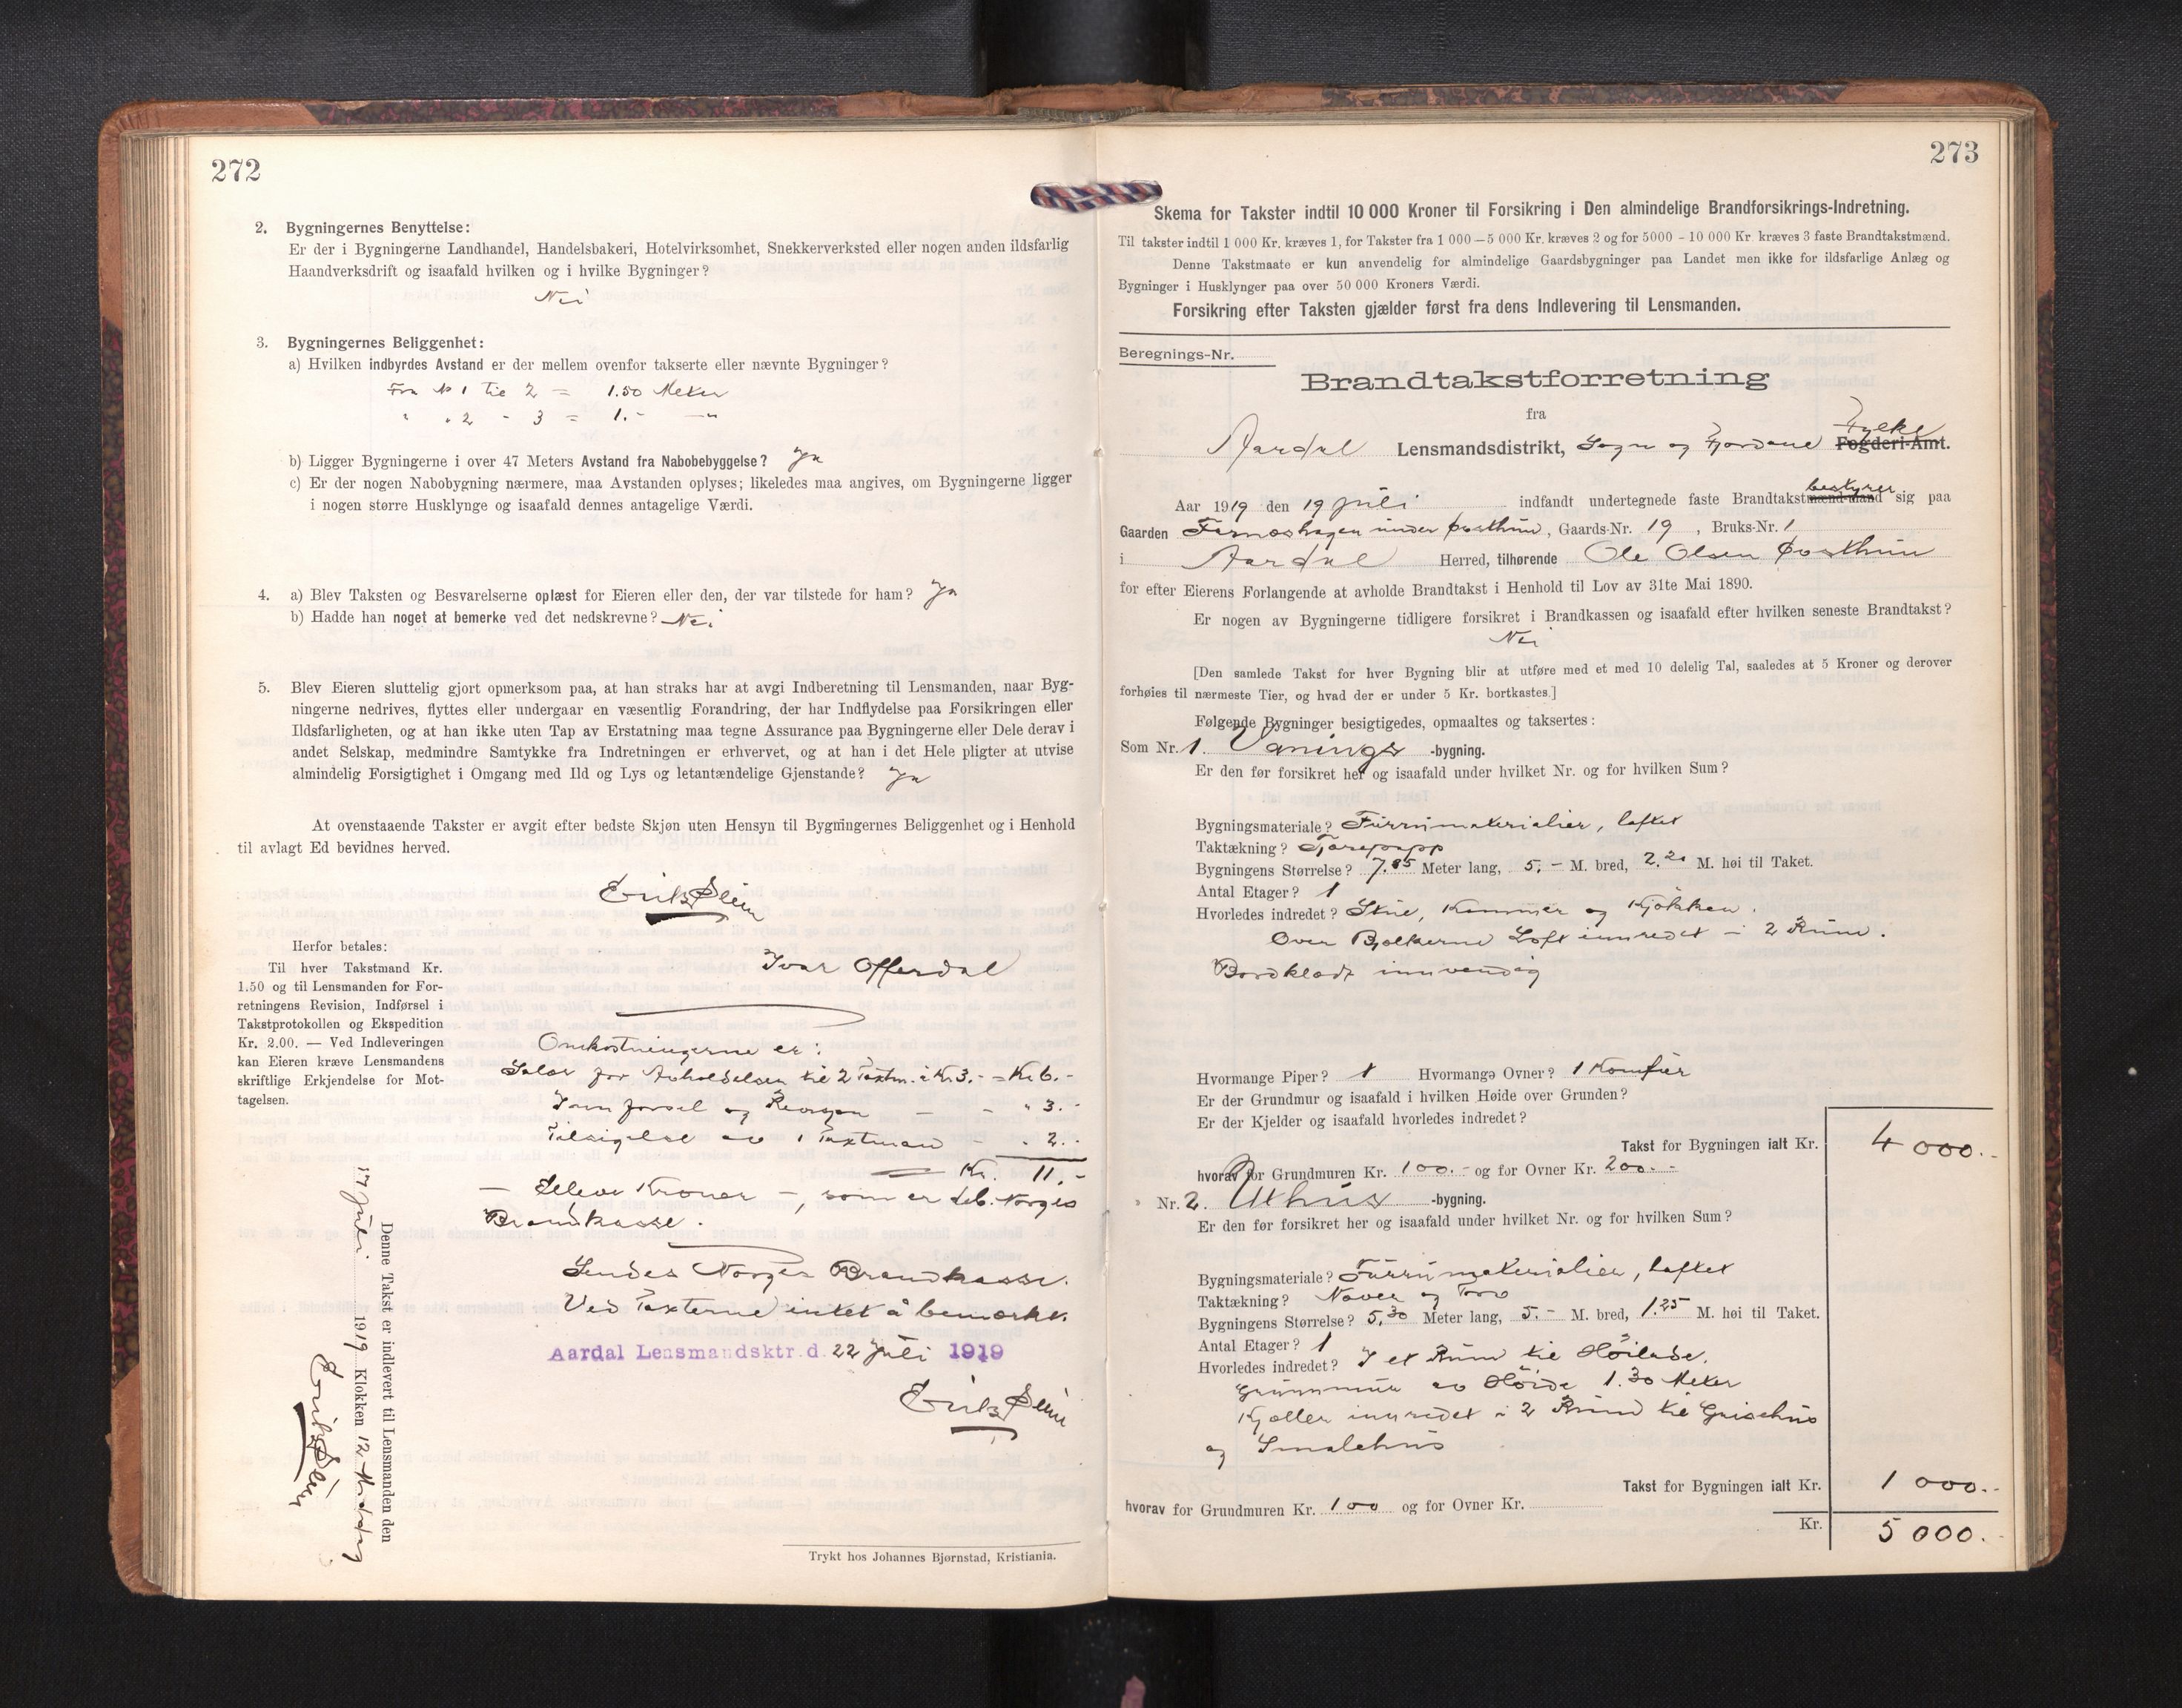 272
2. Bygningernes Benyttelse:
Er der i Bygningerne Landhandel, Handelsbakeri, Hotelvirksomhet, Snekkerverksted eller nogen anden ildsfarlig
Haandverksdrift og isaafald hvilken og i hvilke Bygninger?
Nei
3. Bygningernes Beliggenhet:
a) Hvilken indbyrdes Avstand er der mellem ovenfor takserte eller nævnte Bygninger?
Fra № 1 til 2 = 1.50 Meter
" " 2 - 3 = 1.- —"
b) Ligger Bygningerne i over 47 Meters Avstand fra Nabobebyggelse? Ja
c) Er der nogen Nabobygning nærmere, maa Avstanden oplyses; likeledes maa angives, om Bygningerne ligger
i nogen større Husklynge og isaafald dennes antagelige Værdi.
4. a) Blev Taksten og Besvarelserne oplæst for Eieren eller den, der var tilstede for ham? Ja
b) Hadde han noget at bemerke ved det nedskrevne? Nei
5. Blev Eieren sluttelig gjort opmerksom paa, at han straks har at avgi Indberetning til Lensmanden, naar Byg-
ningerne nedrives, flyttes eller undergaar en væsentlig Forandring, der har Indflydelse paa Forsikringen eller
Ildsfarligheten, og at han ikke uten Tap av Erstatning maa tegne Assurance paa Bygningerne eller Dele derav i
andet Selskap, medmindre Samtykke fra Indretningen er erhvervet, og at han i det Hele pligter at utvise
almindelig Forsigtighet i Omgang med Ild og Lys og letantændelige Gjenstande? Ja
At ovenstaaende Takster er avgit efter bedste Skjøn uten Hensyn til Bygningernes Beliggenhet og i Henhold
til avlagt Ed bevidnes herved.
Erik Slinn
Ivar Offerdal
Herfor betales:
Til hver Takstmand Kr.
1.50 og til Lensmanden for For-
retningens Revision, Indførsel i
Takstprotokollen og Ekspedition
Kr. 2.00. — Ved Indleveringen
kan Eieren kræve Lensmandens
skriftlige Erkjendelse for Mot-
tagelsen.
Omkostningerne er:
Salær for Avholdelsen til 2 Taxtm. à Kr. 3.- = Kr. 6.-
- - " 3.-
Tilsigelse av 1 Taxtmand - " 2.-
Kr. 11.-
— Elleve Kroner —, som er deb. Norges
Brandkasse.
Sendes Norges Brandkasse.
Ved Taxterne intet å bemærke.
Aardal Lensmandsktr. d. 22 Juli 1919
Erik Slinn
Denne Takst er indlevert til Lensmanden den
17 Juli 1919 Klokken 12 Middag
Erik Slinn
Trykt hos Johannes Bjørnstad, Kristiania.
273
Skema for Takster indtil 10 000 Kroner til Forsikring i Den almindelige Brandforsikrings-Indretning.
Til takster indtil 1 000 Kr. kræves 1, for Takster fra 1 000—5 000 Kr. kræves 2 og for 5000 - 10 000 Kr kræves 3 faste Brandtakstmænd.
Denne Takstmaate er kun anvendelig for almindelige Gaardsbygninger paa Landet men ikke for ildsfarlige Anlæg og
Bygninger i Husklynger paa over 50 000 Kroners Værdi.
Forsikring efter Taksten gjælder først fra dens Indlevering til Lensmanden.
Beregnings-Nr.
Brandtakstforretning
fra
Fylke
Aardal Lensmandsdistrikt, Sogn og Fjordane Fogderi-Amt.
bestyrer
Aar 1919 den 19 Juli indfandt undertegnede faste Brandtakstmænd-mand sig paa
Gaarden under Øvsthun, Gaards-Nr. 19, Bruks-Nr. 1
i Aardal Herred, tilhørende Ole Olsen Øvsthun
for efter Eierens Forlangende at avholde Brandtakst i Henhold til Lov av 31te Mai 1890.
Er nogen av Bygningerne tidligere forsikret i Brandkassen og isaafald efter hvilken seneste Brandtakst?
Nei
[Den samlede Takst for hver Bygning blir at utføre med et med 10 delelig Tal, saaledes at 5 Kroner og derover
forhøies til nærmeste Tier, og hvad der er under 5 Kr. bortkastes.]
Følgende Bygninger besigtigedes, opmaaltes og taksertes:
Som Nr. 1. Vanings -bygning.
Er den før forsikret her og isaafald under hvilket Nr. og for hvilken Sum?
Bygningsmateriale? Furumaterialier, laftet
Taktækning? Tjærepapp
Bygningens Størrelse? 7.85 Meter lang, 5.- M. bred, 2.20 M. høi til Taket.
Antal Etager? 1
Hvorledes indredet? Stue, Kammer og Kjøkken.
Over Bjelkerne Loft innredet i 2 Rum.
Bordklædt innvendig
Hvormange Piper? 1 Hvormange Ovner? 1 Komfur
Er der Grundmur og isaafald i hvilken Høide over Grunden?
Er der Kjelder og isaafald hvorledes indredet?
Takst for Bygningen ialt Kr. 4 000.-
hvorav for Grundmuren Kr. 100.- og for Ovner Kr. 200.-
" Nr. 2. Uthus -bygning.
Er den før forsikret her og isaafald under hvilket Nr. og for hvilken Sum?
Bygningsmateriale? Furumaterialier, laftet
Taktækning? Næver og Torv
Bygningens Størrelse? 5.30 Meter lang, 5.- M. bred, 1.25 M. høi til Taket.
Antal Etager? 1
Hvorledes indredet? I et Rum til Höilade.
Grunnmur av Höide 1.30 Meter
Kjeller innredet i 2 Rum til Grisehus
og Smalehus
Takst for Bygningen ialt Kr. 1 000.-
hvorav for Grundmuren Kr. 100 og for Ovner Kr.
Kr. 5 000.-